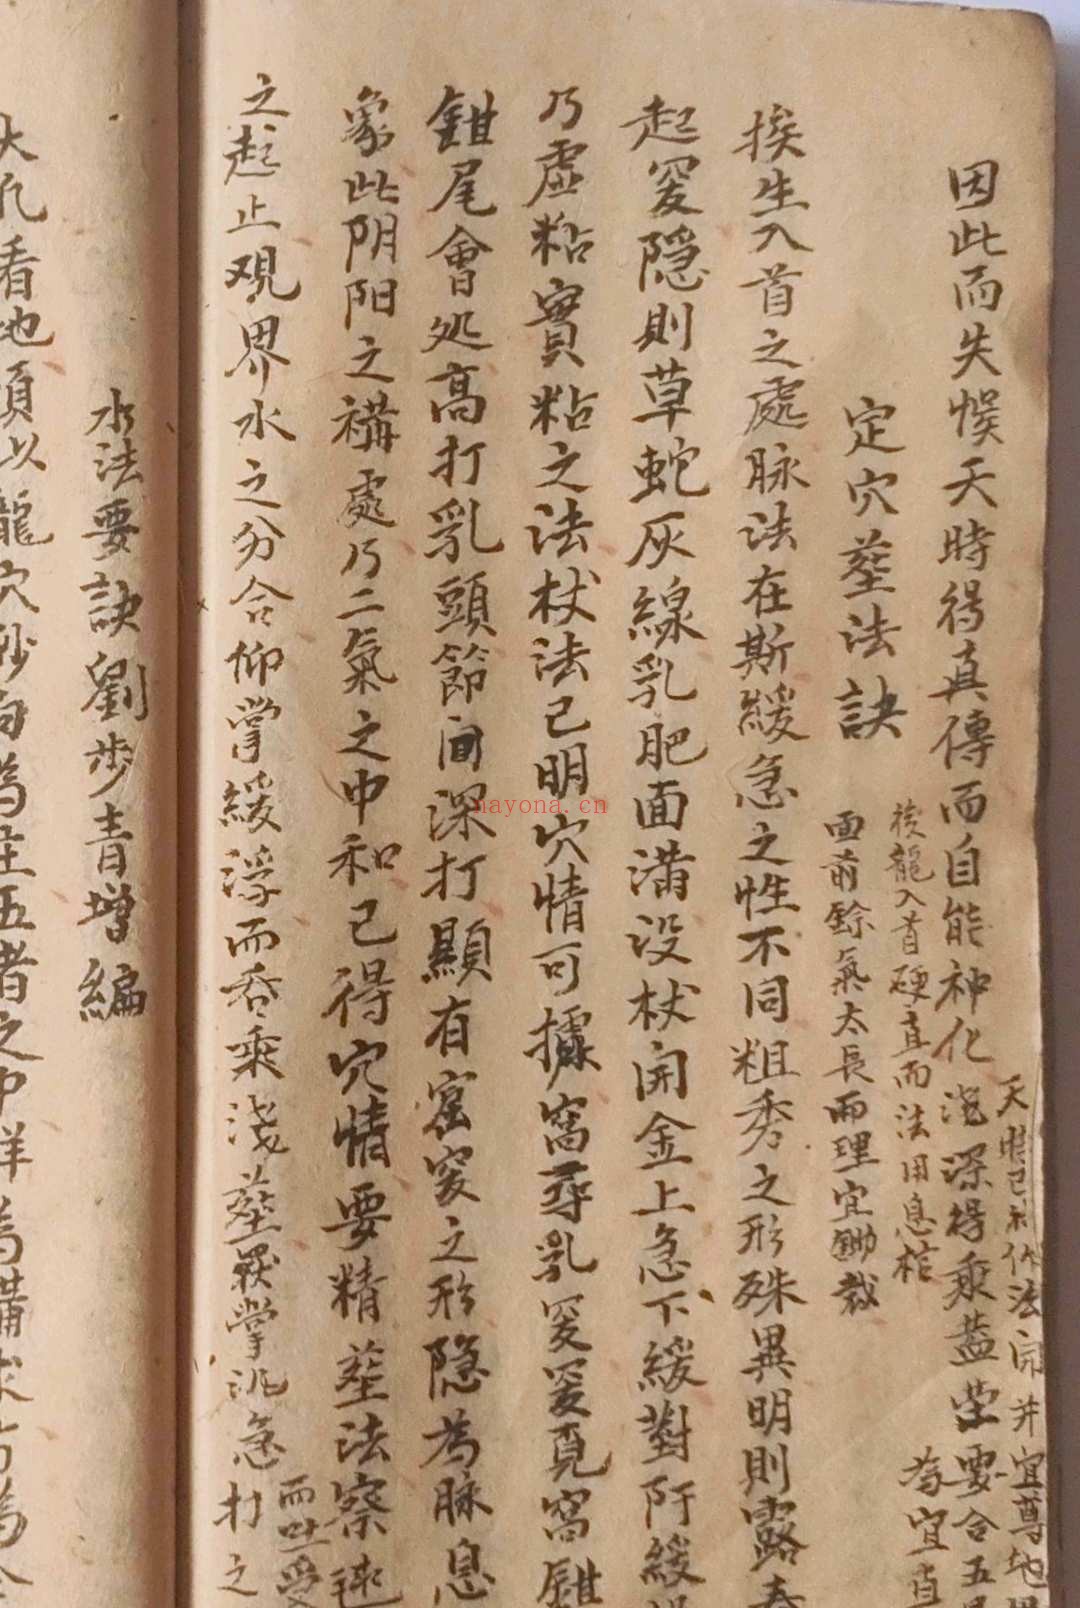 因此而失悮天時得真傳而自能神化
天時已利作法開井宜尊地
深得乘葢茔要合五
為宜直
定穴塟法訣
龍入首硬直而法用息棺
面前餘氣太長而理宜鋤裁
挨生入首之處脉法在斯緩急之性不同粗秀之形殊異明則露
起窔隐則草蛇灰線乳肥面滿没杖開金上急下緩對阡緩
乃虚粘實粘之法杖法已明穴情可據窩尋乳窔窔覓窩鉗
鉗尾會処高打乳頭節间深打顯有窟窔之形隐為脉息
象此阴阳之構處乃二氣之中和已得穴情要精塟法察
之起止观界水之分合仰掌緩浮而吞乘浅塟覆掌急
而吐受
打之
水法要訣劉步青增編
大凡看地須以龍穴砂向為主五者之中